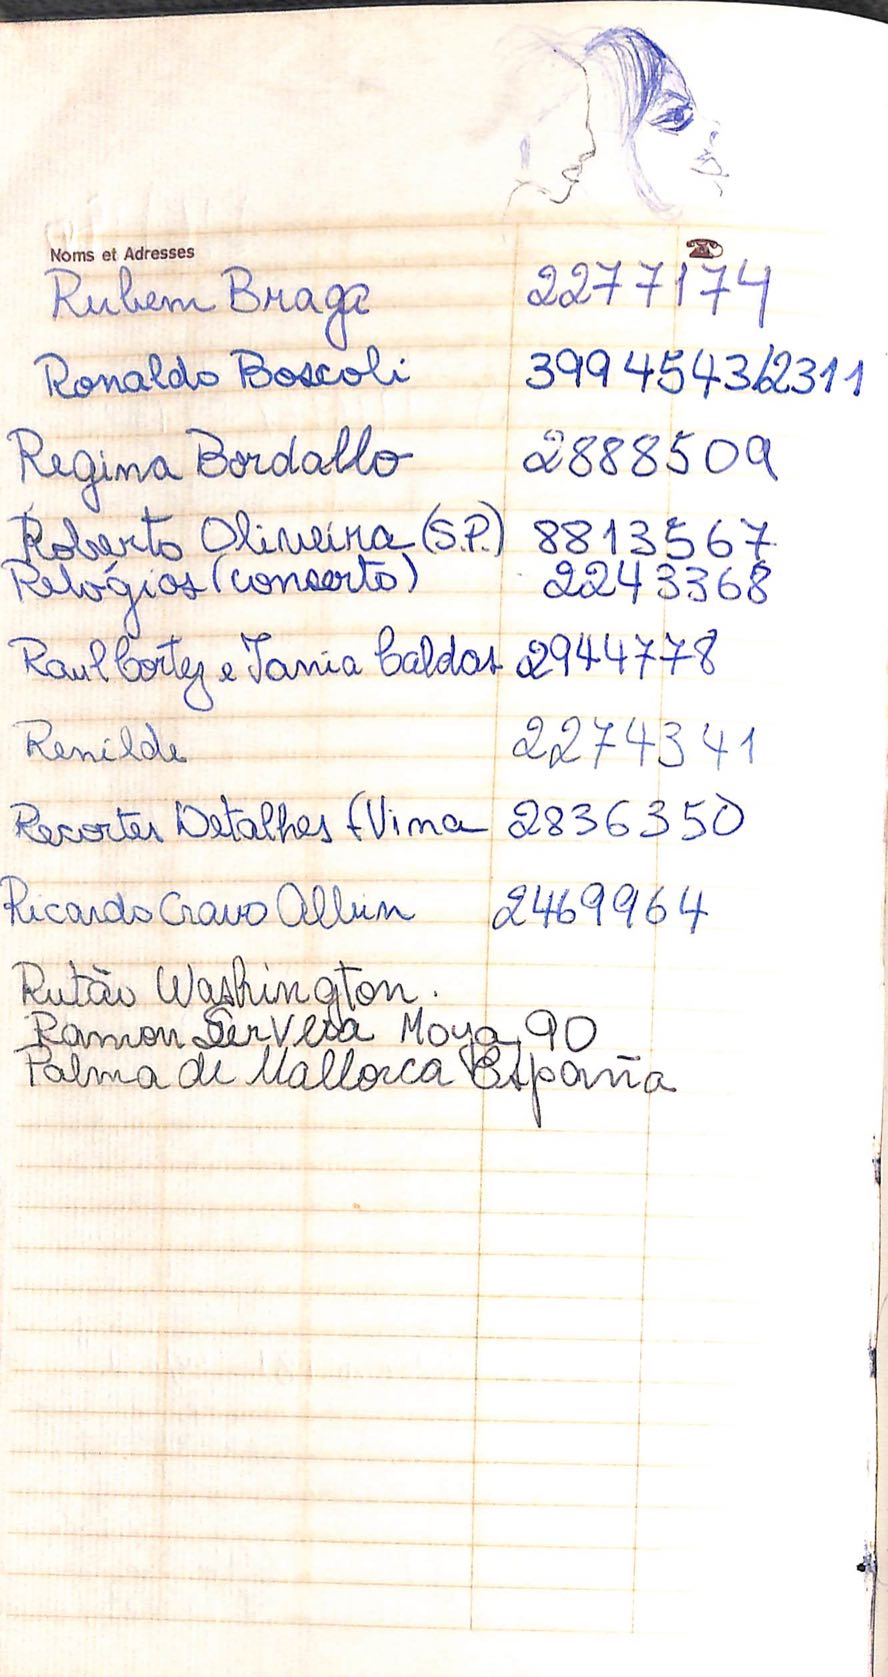 Noms et Adresses
Rubem Braga 2277174
Ronaldo Boscoli 399454362311
Regina Bordallo 2888509
Roberto Oliveira (S.P.) 8813567
Relógios (conserto) 2243368
Raul Cortez e Tania Caldas 2944778
Renilde 2274341
Recortes Detalhes (Vima 2836350
Ricardo Cravo Albin 2469964
Rutão Washington.
Ramon Servera Moya 90
Palma de Mallorca España